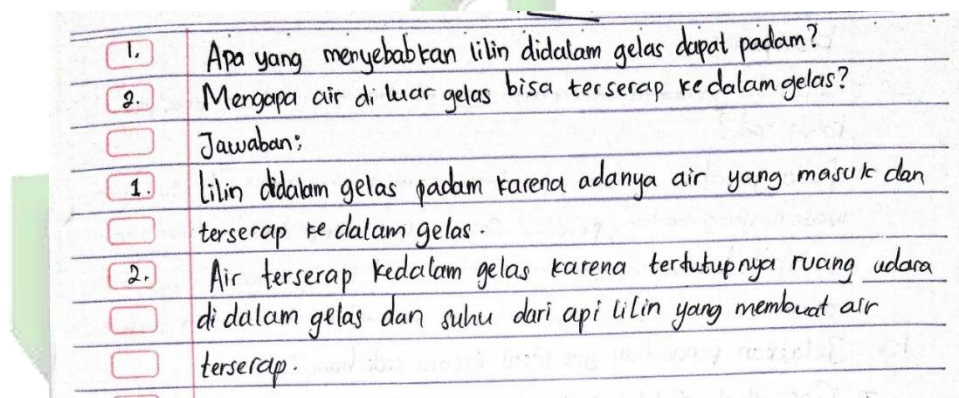 1. Apa yang menyebabkan lilin didalam gelas dapat padam?
2. Mengapa air di luar gelas bisa terserap kedalam gelas?
Jawaban:
1. lilin didalam gelas padam karena adanya air yang masuk dan
terserap ke dalam gelas.
2. Air terserap kedalam gelas karena tertutupnya ruang udara
di dalam gelas dan suhu dari api lilin yang membuat air
terserap.